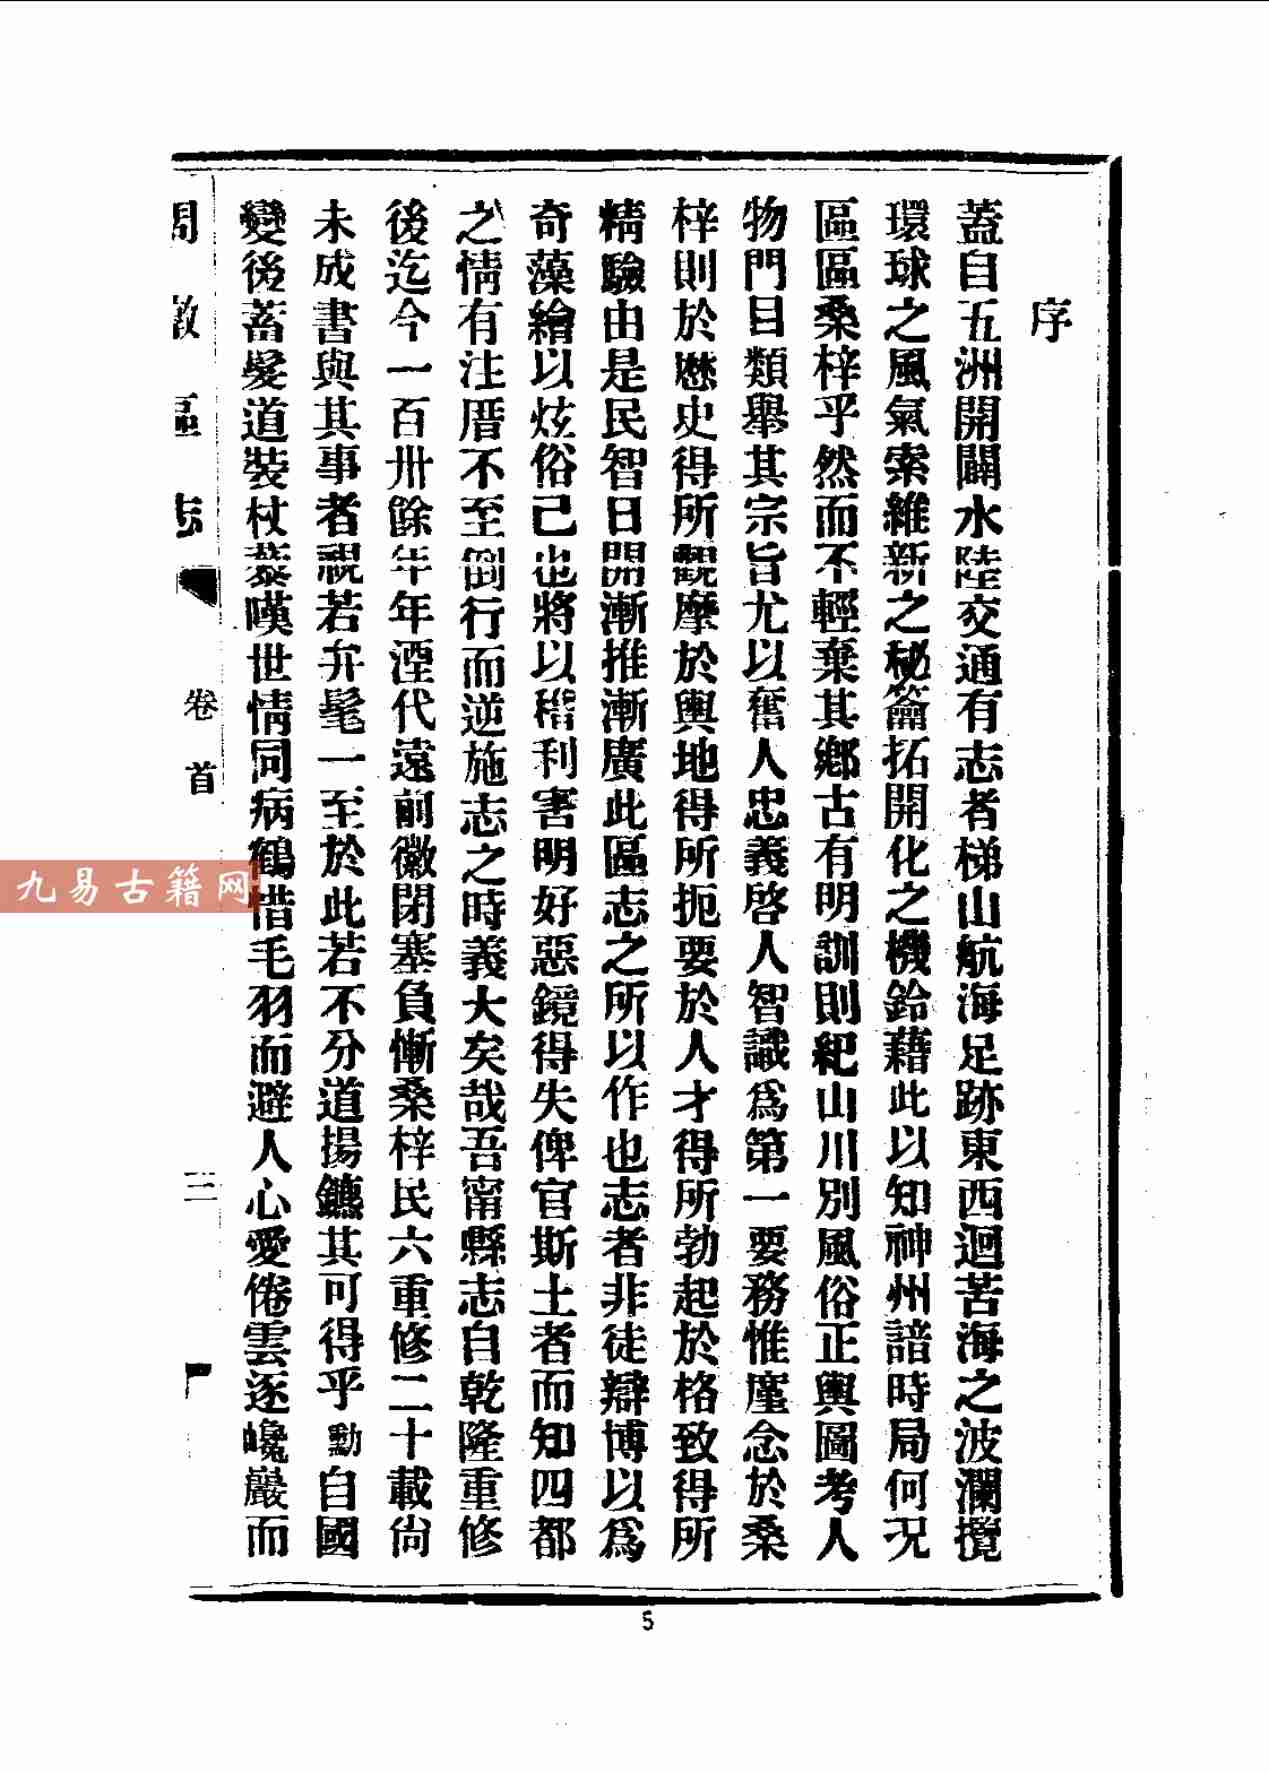 序
蓋自五洲開闢水陸交通有志者梯山航海足跡東西迴苦海之波瀾攬
環球之風氣索維新之秘籥拓開化之機鈴藉此以知神州諳時局何况
區區桑梓乎然而不輕棄其鄉古有明訓則紀山川別風俗正輿圖考人
物門目類舉其宗旨尤以奮人忠義啓人智識爲第一要務惟廑念於桑
梓則於歷史得所觀摩於輿地得所扼要於人才得所勃起於格致得所
精驗由是民智日開漸推漸廣此區志之所以作也志者非徒辯博以爲
奇藻繪以炫俗己也將以稽利害明好惡鏡得失俾官斯土者而知四都
之情有注厝不至倒行而逆施志之時義大矣哉吾甯縣志自乾隆重修
後迄今一百卅餘年年湮代遠前徽閉塞負慚桑梓民六重修二十載尙
未成書與其事者視若弁髦一至於此若不分道揚鑣其可得乎勳自國
變後蓄髮道裝杖藜嘆世情同病鶴惜毛羽而避人心愛倦雲逐巉巖而
周墩區志 卷首
三
5
九易古籍网